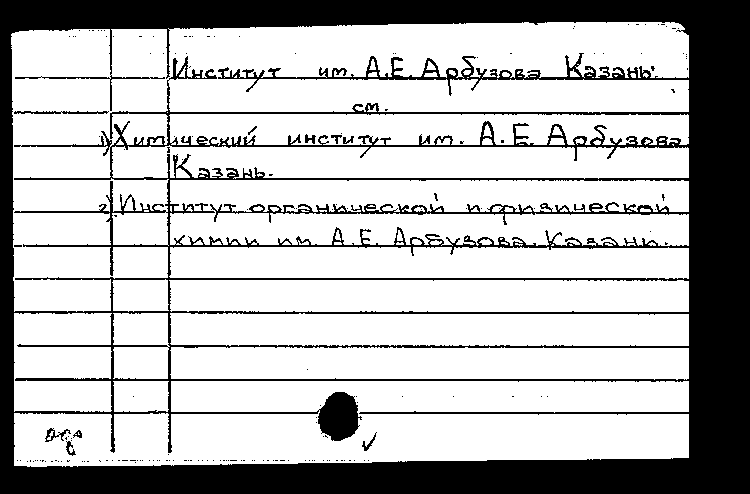 Институт им. А.Е. Арбузова Казань.
см.
1) Химический институт им. А.Е. Арбузова
Казань.
2) Институт органической и физической
химии им. А.Е. Арбузова. Казань.